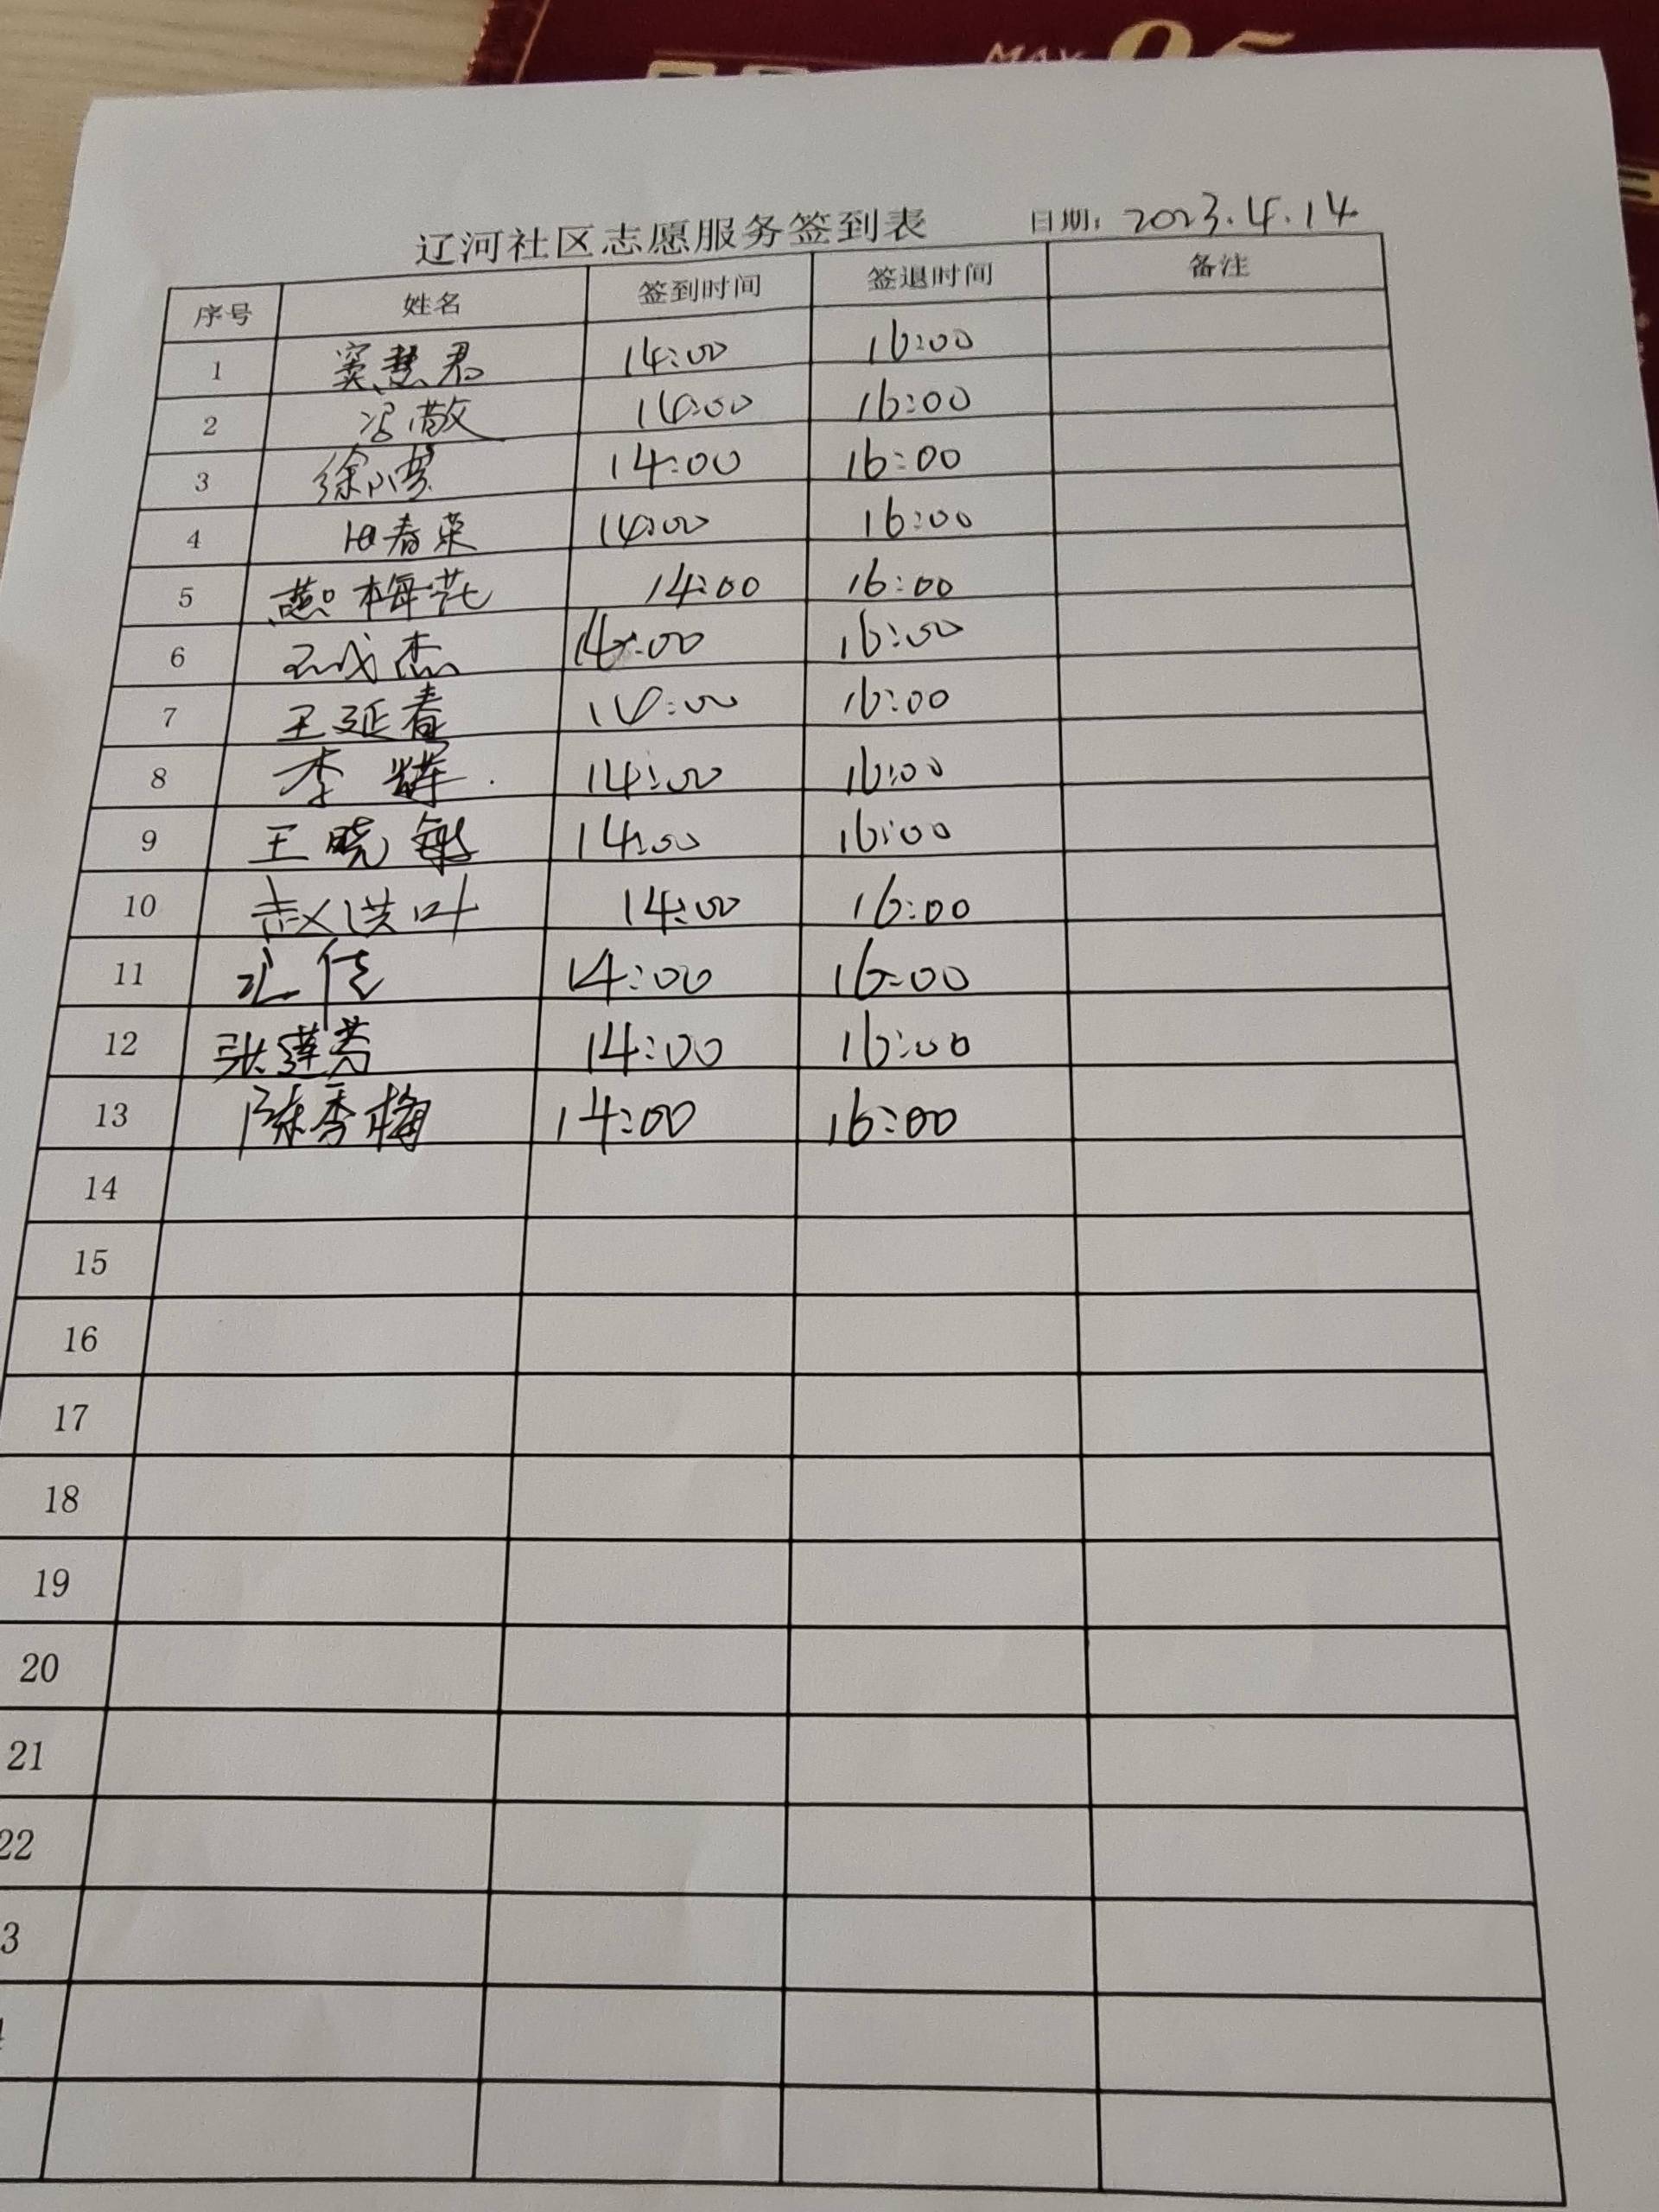 MAX 95
辽河社区志愿服务签到表 日期: 2023.4.14
序号 姓名 签到时间 签退时间 备注
1 窦慧君 14:00 16:00
2 冯敬 14:00 16:00
3 徐小梦 14:00 16:00
4 田春荣 14:00 16:00
5 燕梅花 14:00 16:00
6 杰 14:00 16:00
7 王延春 14:00 16:00
8 李辉 14:00 16:00
9 王晓敏 14:00 16:00
10 赵洪叶 14:00 16:00
11 14:00 16:00
12 张莲芳 14:00 16:00
13 陈秀梅 14:00 16:00
14
15
16
17
18
19
20
21
22
3